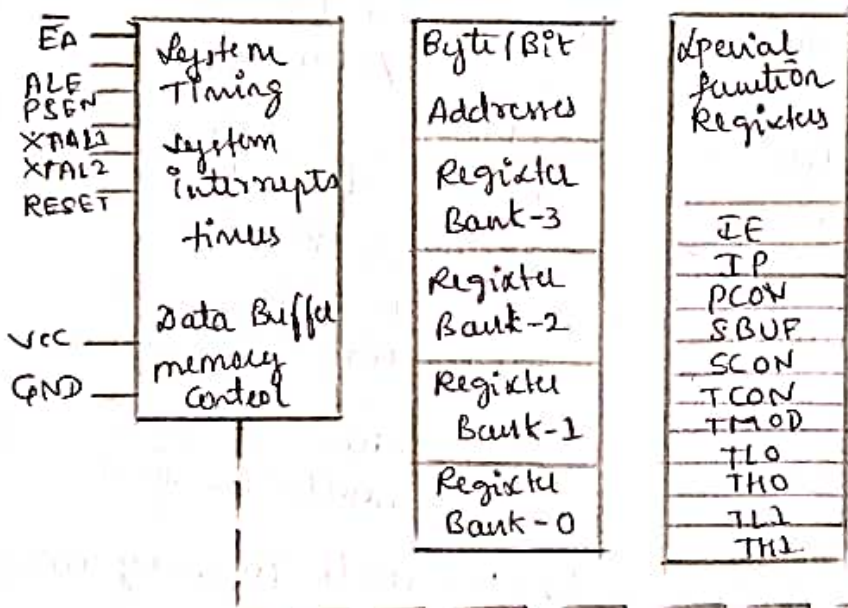 EA
ALE
PSEN
XTAL1
XTAL2
RESET
VCC
GND
System
Timing
System
interrupts
timers
Data Buffer
memory
Control
Byte/Bit
Addresses
Register
Bank-3
Register
Bank-2
Register
Bank-1
Register
Bank-0
Special
function
Registers
IE
IP
PCON
SBUF
SCON
TCON
TMOD
TL0
TH0
TL1
TH1